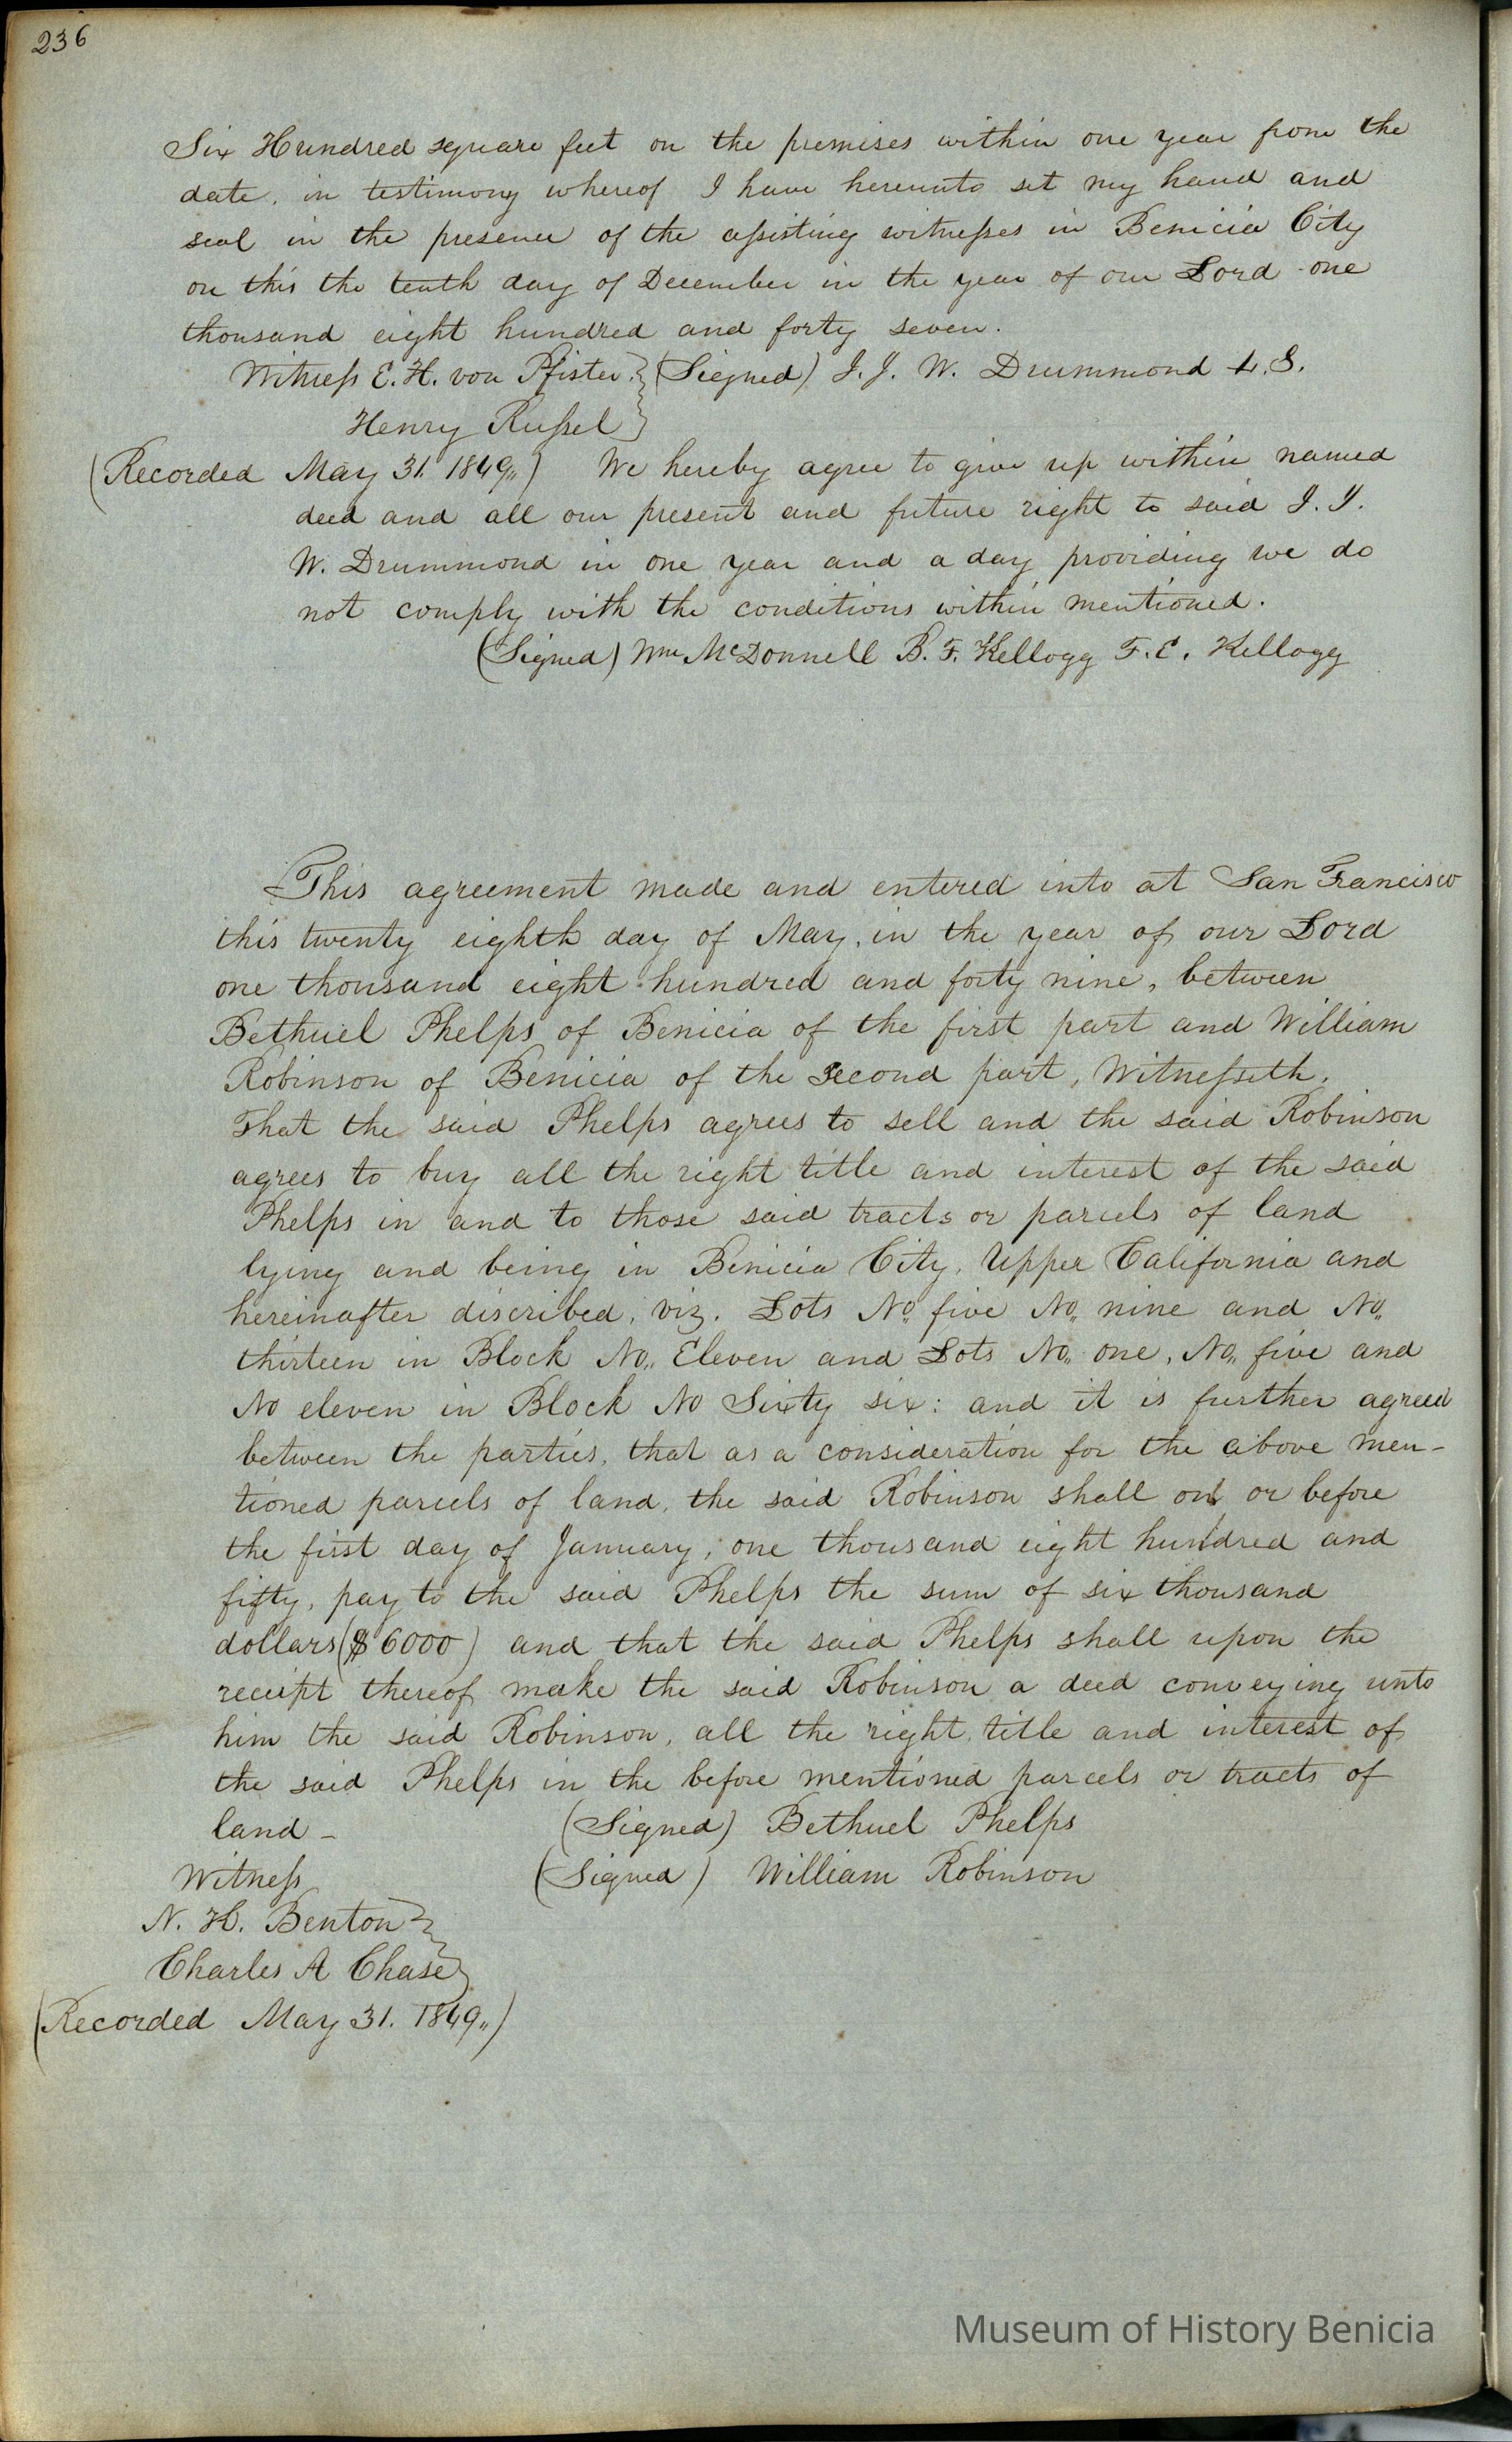 236
Six Hundred square feet on the premises within one year from the
date, in testimony whereof I have hereunto set my hand and
seal in the presence of the assisting witnesses in Benicia City
on this the tenth day of December in the year of our Lord one
thousand eight hundred and forty seven.
Witness E. H. von Pfister } (Signed) J. J. W. Drummond L. S.
Henry Russel }
(Recorded May 31. 1849„) We hereby agree to give up within named
deed and all our present and future right to said J. J.
W. Drummond in one year and a day providing we do
not comply with the conditions within mentioned.
(Signed) Wm McDonnell B. F. Kellogg F. E. Kellogg
This agreement made and entered into at San Francisco
this twenty eighth day of May, in the year of our Lord
one thousand eight hundred and forty nine, between
Bethuel Phelps of Benicia of the first part and William
Robinson of Benicia of the second part, Witnesseth.
That the said Phelps agrees to sell and the said Robinson
agrees to buy all the right title and interest of the said
Phelps in and to those said tracts or parcels of land
lying and being in Benicia City, Upper California and
hereinafter discribed, viz. Lots No„ five No„ nine and No„
thirteen in Block No„ Eleven and Lots No„ one, No„ five and
No eleven in Block No Sixty six: and it is further agreed
between the parties, that as a consideration for the above men-
tioned parcels of land, the said Robinson shall on or before
the first day of January, one thousand eight hundred and
fifty, pay to the said Phelps the sum of six thousand
dollars ($6000) and that the said Phelps shall upon the
receipt thereof make the said Robinson a deed conveying unto
him the said Robinson, all the right, title and interest of
the said Phelps in the before mentioned parcels or tracts of
land - (Signed) Bethuel Phelps
Witness (Signed) William Robinson
N. H. Benton }
Charles A Chase }
(Recorded May 31. 1849„)
Museum of History Benicia